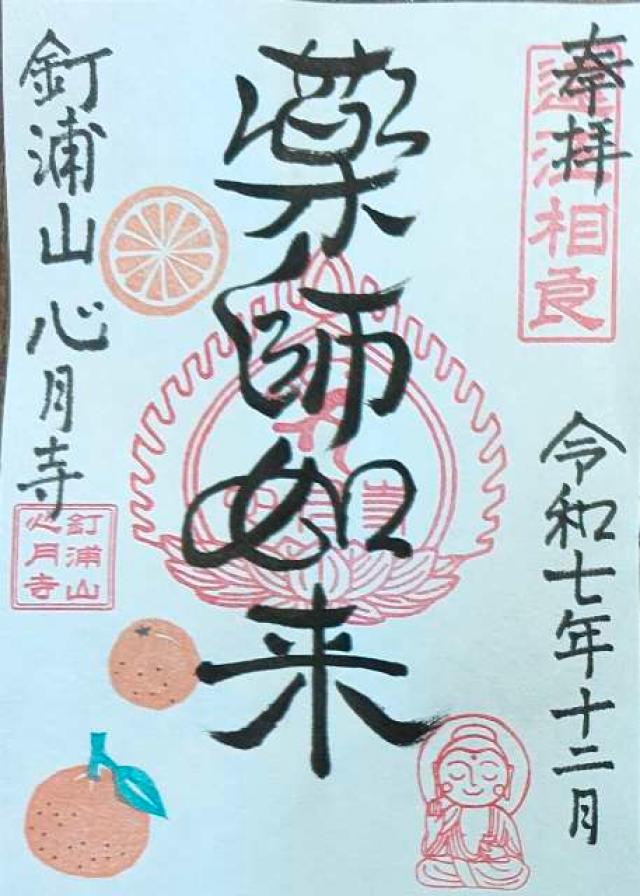 奉拝
遠江相良
令和七年十二月
薬師如来
釘浦山心月寺
釘浦山
心月寺